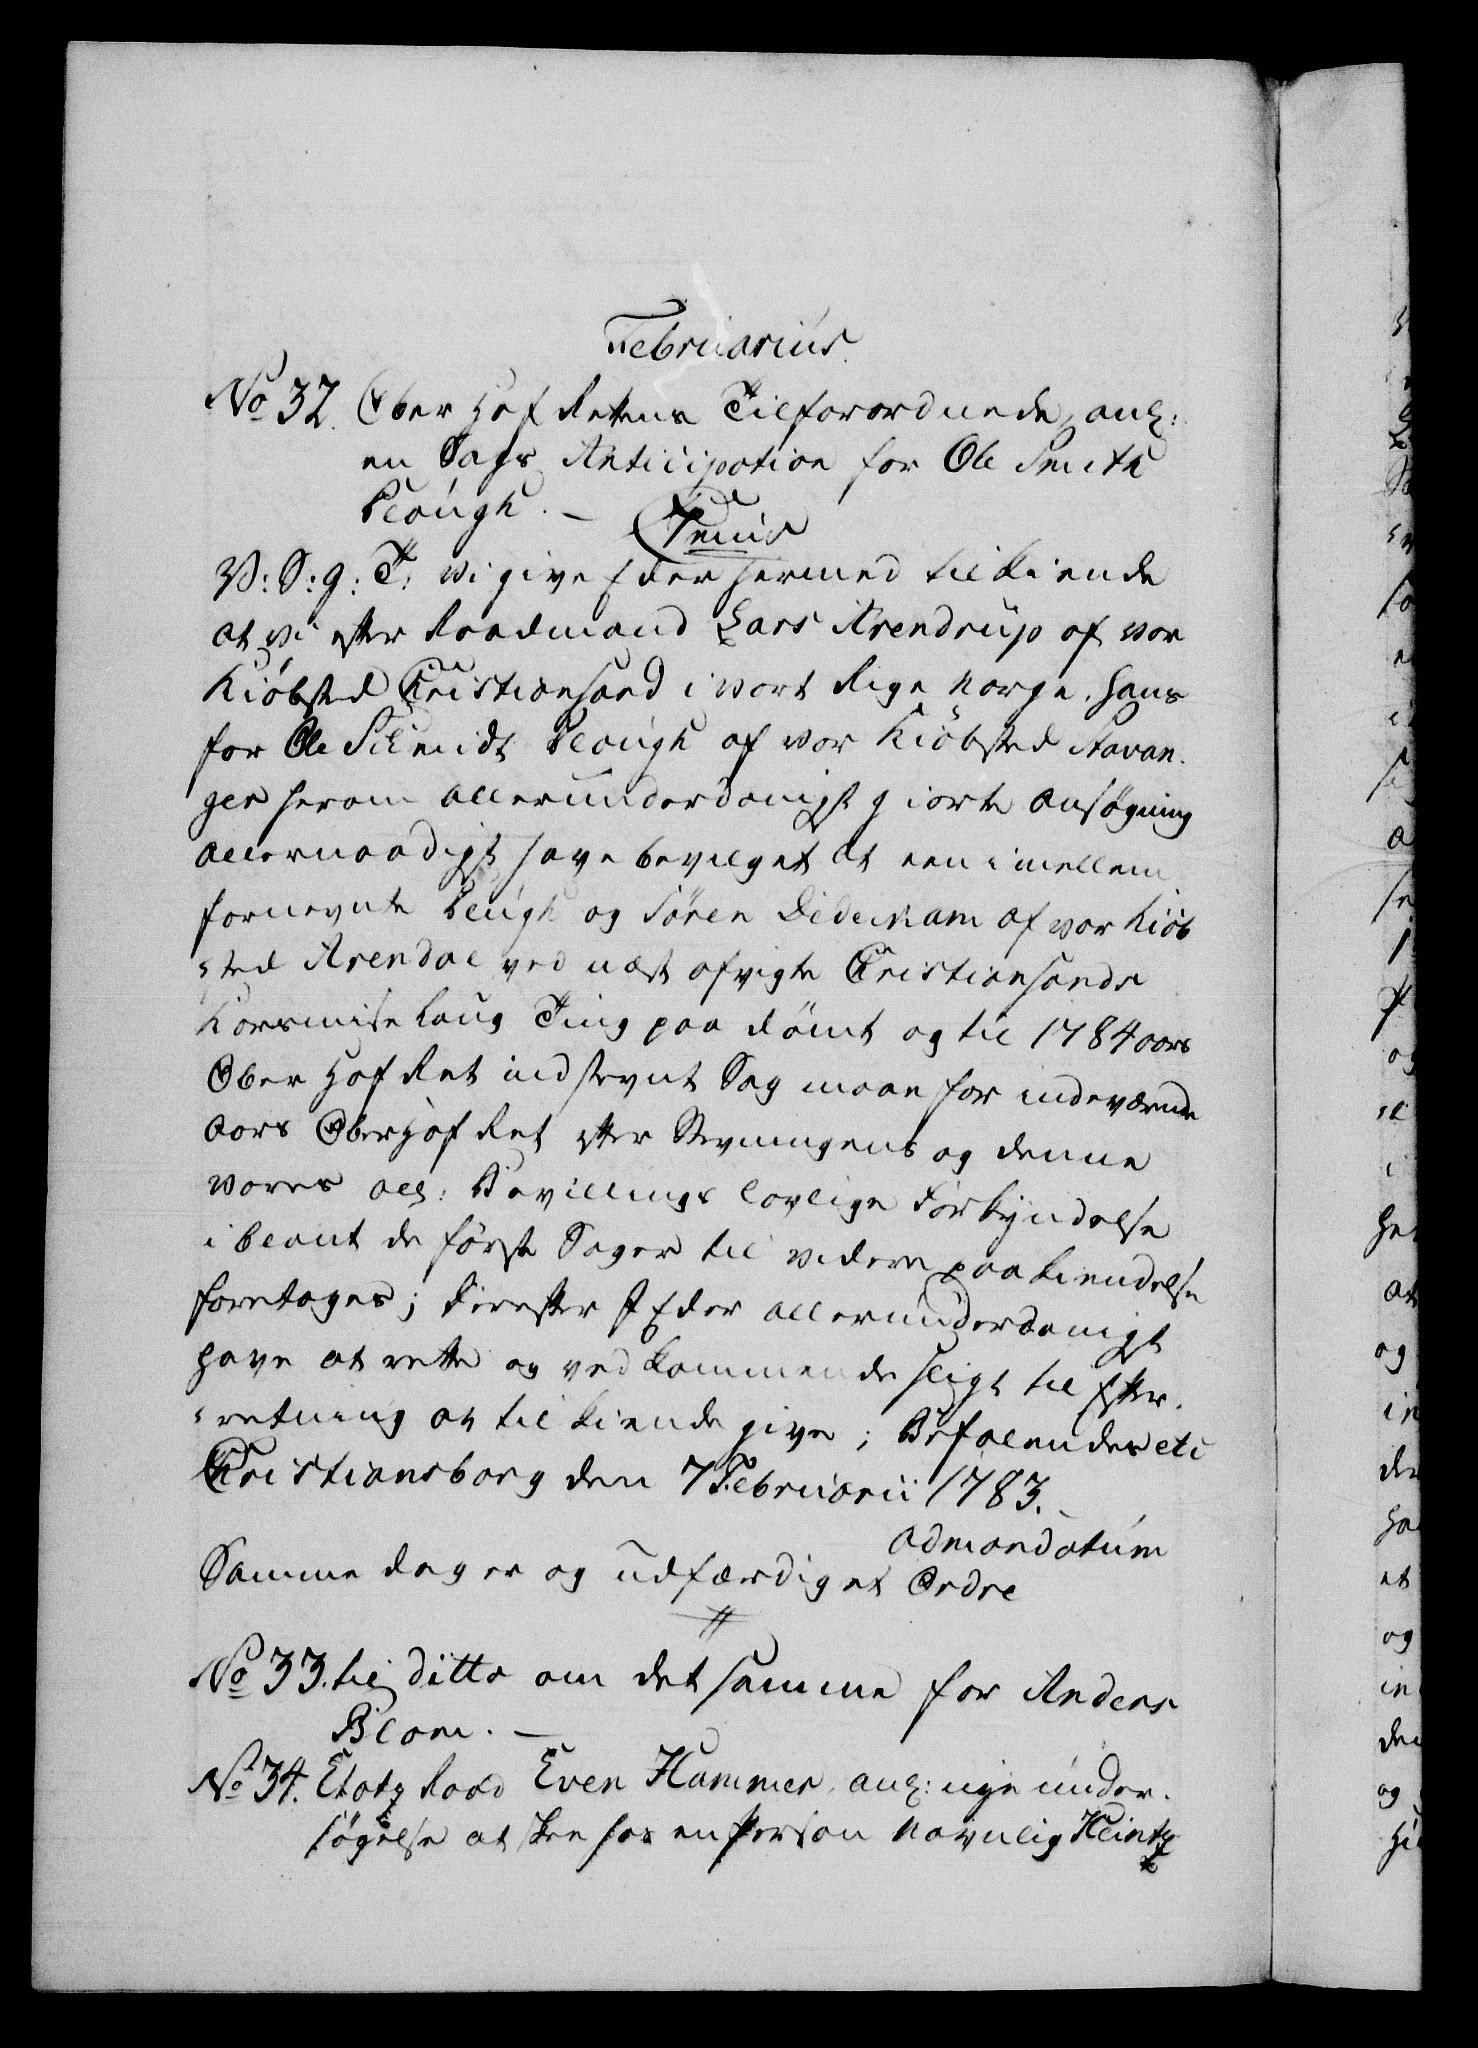 Februarius.
No 32. Ober Hof Rettens Tilforordnede, anl:
en Sags Anticipation for Ole Smith
Plough. —
V: S: g: T: Vi give Eder hermed tilkiende
at vi efter Raadmand Lars Arendrup af vor
Kiöbsted Christiansand i vort Rige Norge, hans
for Ole Schmidt Plough af vor Kiöbsted Stavan-
ger herom allerunderdanigst giorte ansøgning
allernaadigst have bevilget at een imellem
fornevnte Plough og Sören Dedekam af vor Kiöb
sted Arendal ved næst afvigte Christiansands
Laug Ting paa dömt og til 1784 aars
Ober Hof Ret indstevnt Sag maae for indeværende
Aars OberHof Ret efter Stevningens og denne
vores all: Bevillings lovlige Forkyndelse
iblant de første Sager til videre paakiendelse
foretages; Hvorefter I Eder allerunderdanigst
have at rette og vedkommende sligt til Efter-
retning at tilkiende give; Befalendes etc
Christiansborg den 7 Februarii 1783.
ad mandatum
Samme dag er og udfærdiget Ordre
No 33. til ditto om det samme for Anders
Blom. —
No 34. Etatz Raad Even Hammer, anl: nye under-
søgelse at skee hos en Person navnlig Heintz